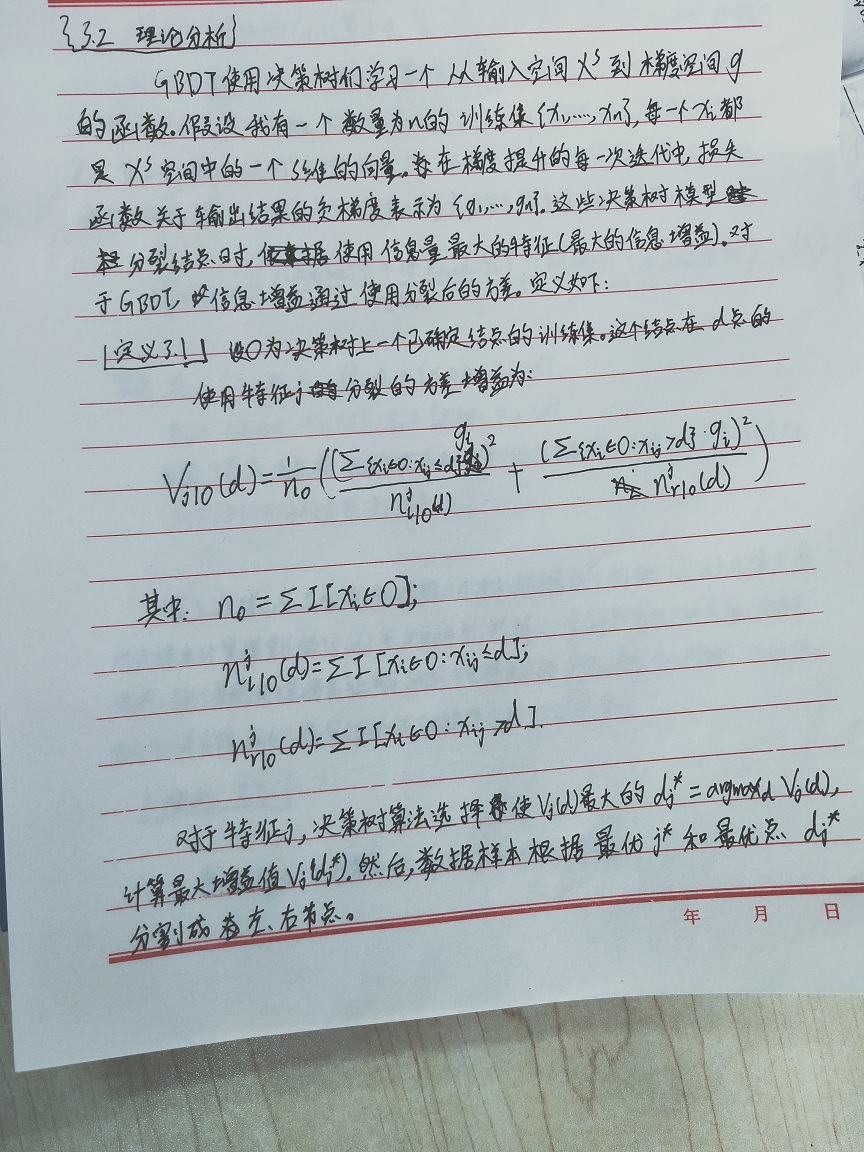 §3.2 理论分析
GBDT使用决策树们学习一个从输入空间X^s到梯度空间g
的函数。假设我有一个数量为n的训练集{x₁,...,xₙ},每一个xᵢ都
是X^s空间中的一个s维的向量。在梯度提升的每一次迭代中,损失
函数关于输出结果的负梯度表示为{g₁,...,gₙ}.这些决策树模型
分裂结点时,使用信息量最大的特征(最大的信息增益)。对
于GBDT,信息增益通过使用分裂后的方差。定义如下:
定义3.1 设O为决策树上一个已确定结点的训练集。这个结点在d点的
使用特征j分裂的方差增益为:
V_{j|O}(d)=1/n_O((Σ{xᵢ∈O:x_{ij}≤d}gᵢ)²/n^j_{l|O}(d) + (Σ{xᵢ∈O:x_{ij}>d}·gᵢ)²/n^j_{r|O}(d))
其中: n_O = ΣI[xᵢ∈O];
n^j_{l|O}(d)=ΣI[xᵢ∈O:x_{ij}≤d];
n^j_{r|O}(d)=ΣI[xᵢ∈O:x_{ij}>d].
对于特征j,决策树算法选择使V_j(d)最大的d_j^*=argmax_d V_j(d),
计算最大增益值V_j(d_j^*).然后,数据样本根据最优j^*和最优点d_j^*
分割成左、右节点。
年 月 日